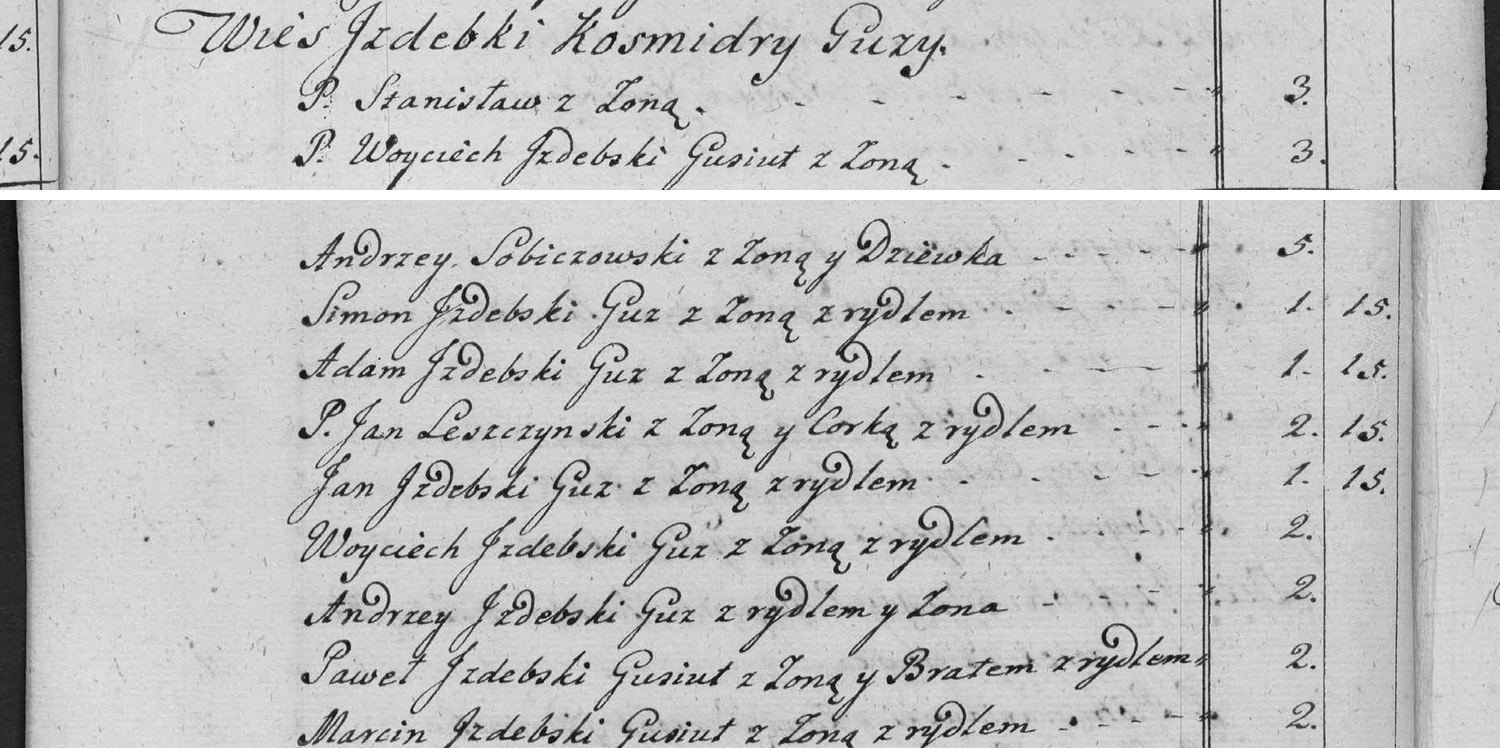 15.
Wiés Jzdebki Kosmidry Guzy.
P. Stanisław z Zoną. - - - - - - " 3.
15. P. Woyciéch Jzdebski Gusiut z Zoną. - - - - " 3.
Andrzey Sobiczowski z Zoną y Dziéwka - - - - " 5.
Simon Jzdebski Guz z Zoną z rydlem - - - - " 1. 15.
Adam Jzdebski Guz z Zoną z rydlem - - - - " 1. 15.
P. Jan Leszczynski z Zoną y Corką z rydlem - - - " 2. 15.
Jan Jzdebski Guz z Zoną z rydlem - - - - " 1. 15.
Woyciéch Jzdebski Guz z Zoną z rydlem - - - " 2.
Andrzey Jzdebski Guz z rydlem y Zona - - - " 2.
Paweł Jzdebski Gusiut z Zoną y Bratem z rydlem " 2.
Marcin Jzdebski Gusiut z Zoną z rydlem - - - " 2.